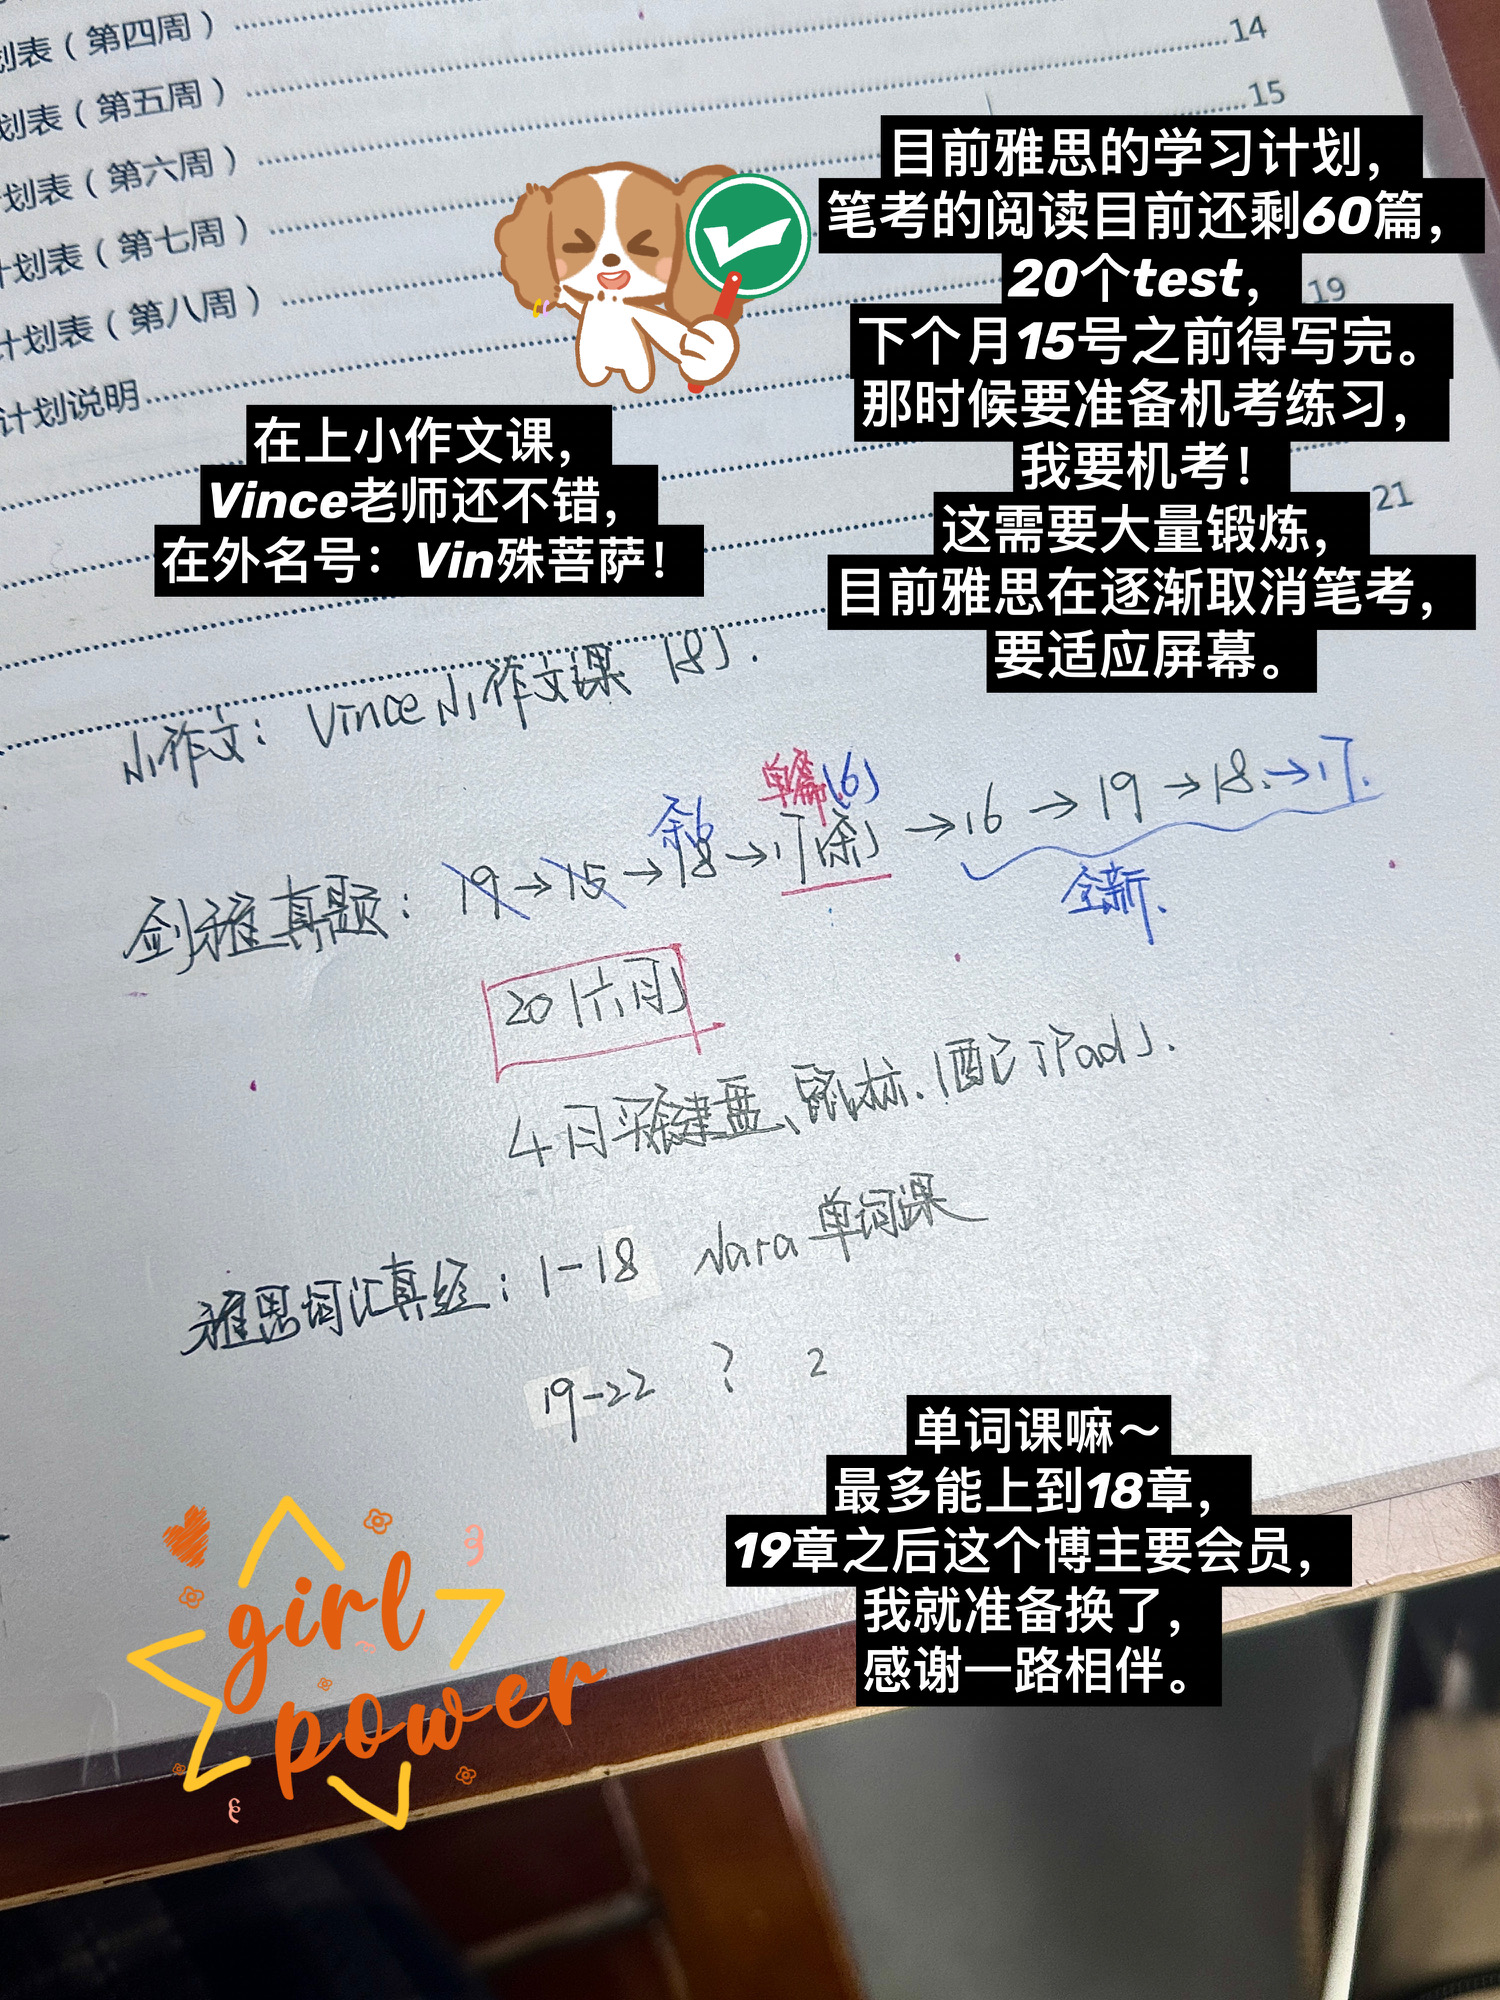 划表（第四周）
14
划表（第五周）
15
计划表（第六周）
计划表（第七周）
计划表（第八周）
19
计划说明
21
目前雅思的学习计划，
笔考的阅读目前还剩60篇，
20个test，
下个月15号之前得写完。
那时候要准备机考练习，
我要机考！
这需要大量锻炼，
目前雅思在逐渐取消笔考，
要适应屏幕。
在上小作文课，
Vince老师还不错，
在外名号：Vin殊菩萨！
小作文：Vince小作文课（8）.
单篇（6）
余6
剑雅真题：19→15→18→17（余）→16→19→18→17.
全新.
20（六月）
4月买键盘、鼠标.（配iPad）.
雅思词汇真经：1-18 Nara单词课
19-22 ? 2
单词课嘛～
最多能上到18章，
19章之后这个博主要会员，
我就准备换了，
感谢一路相伴。
girl
power